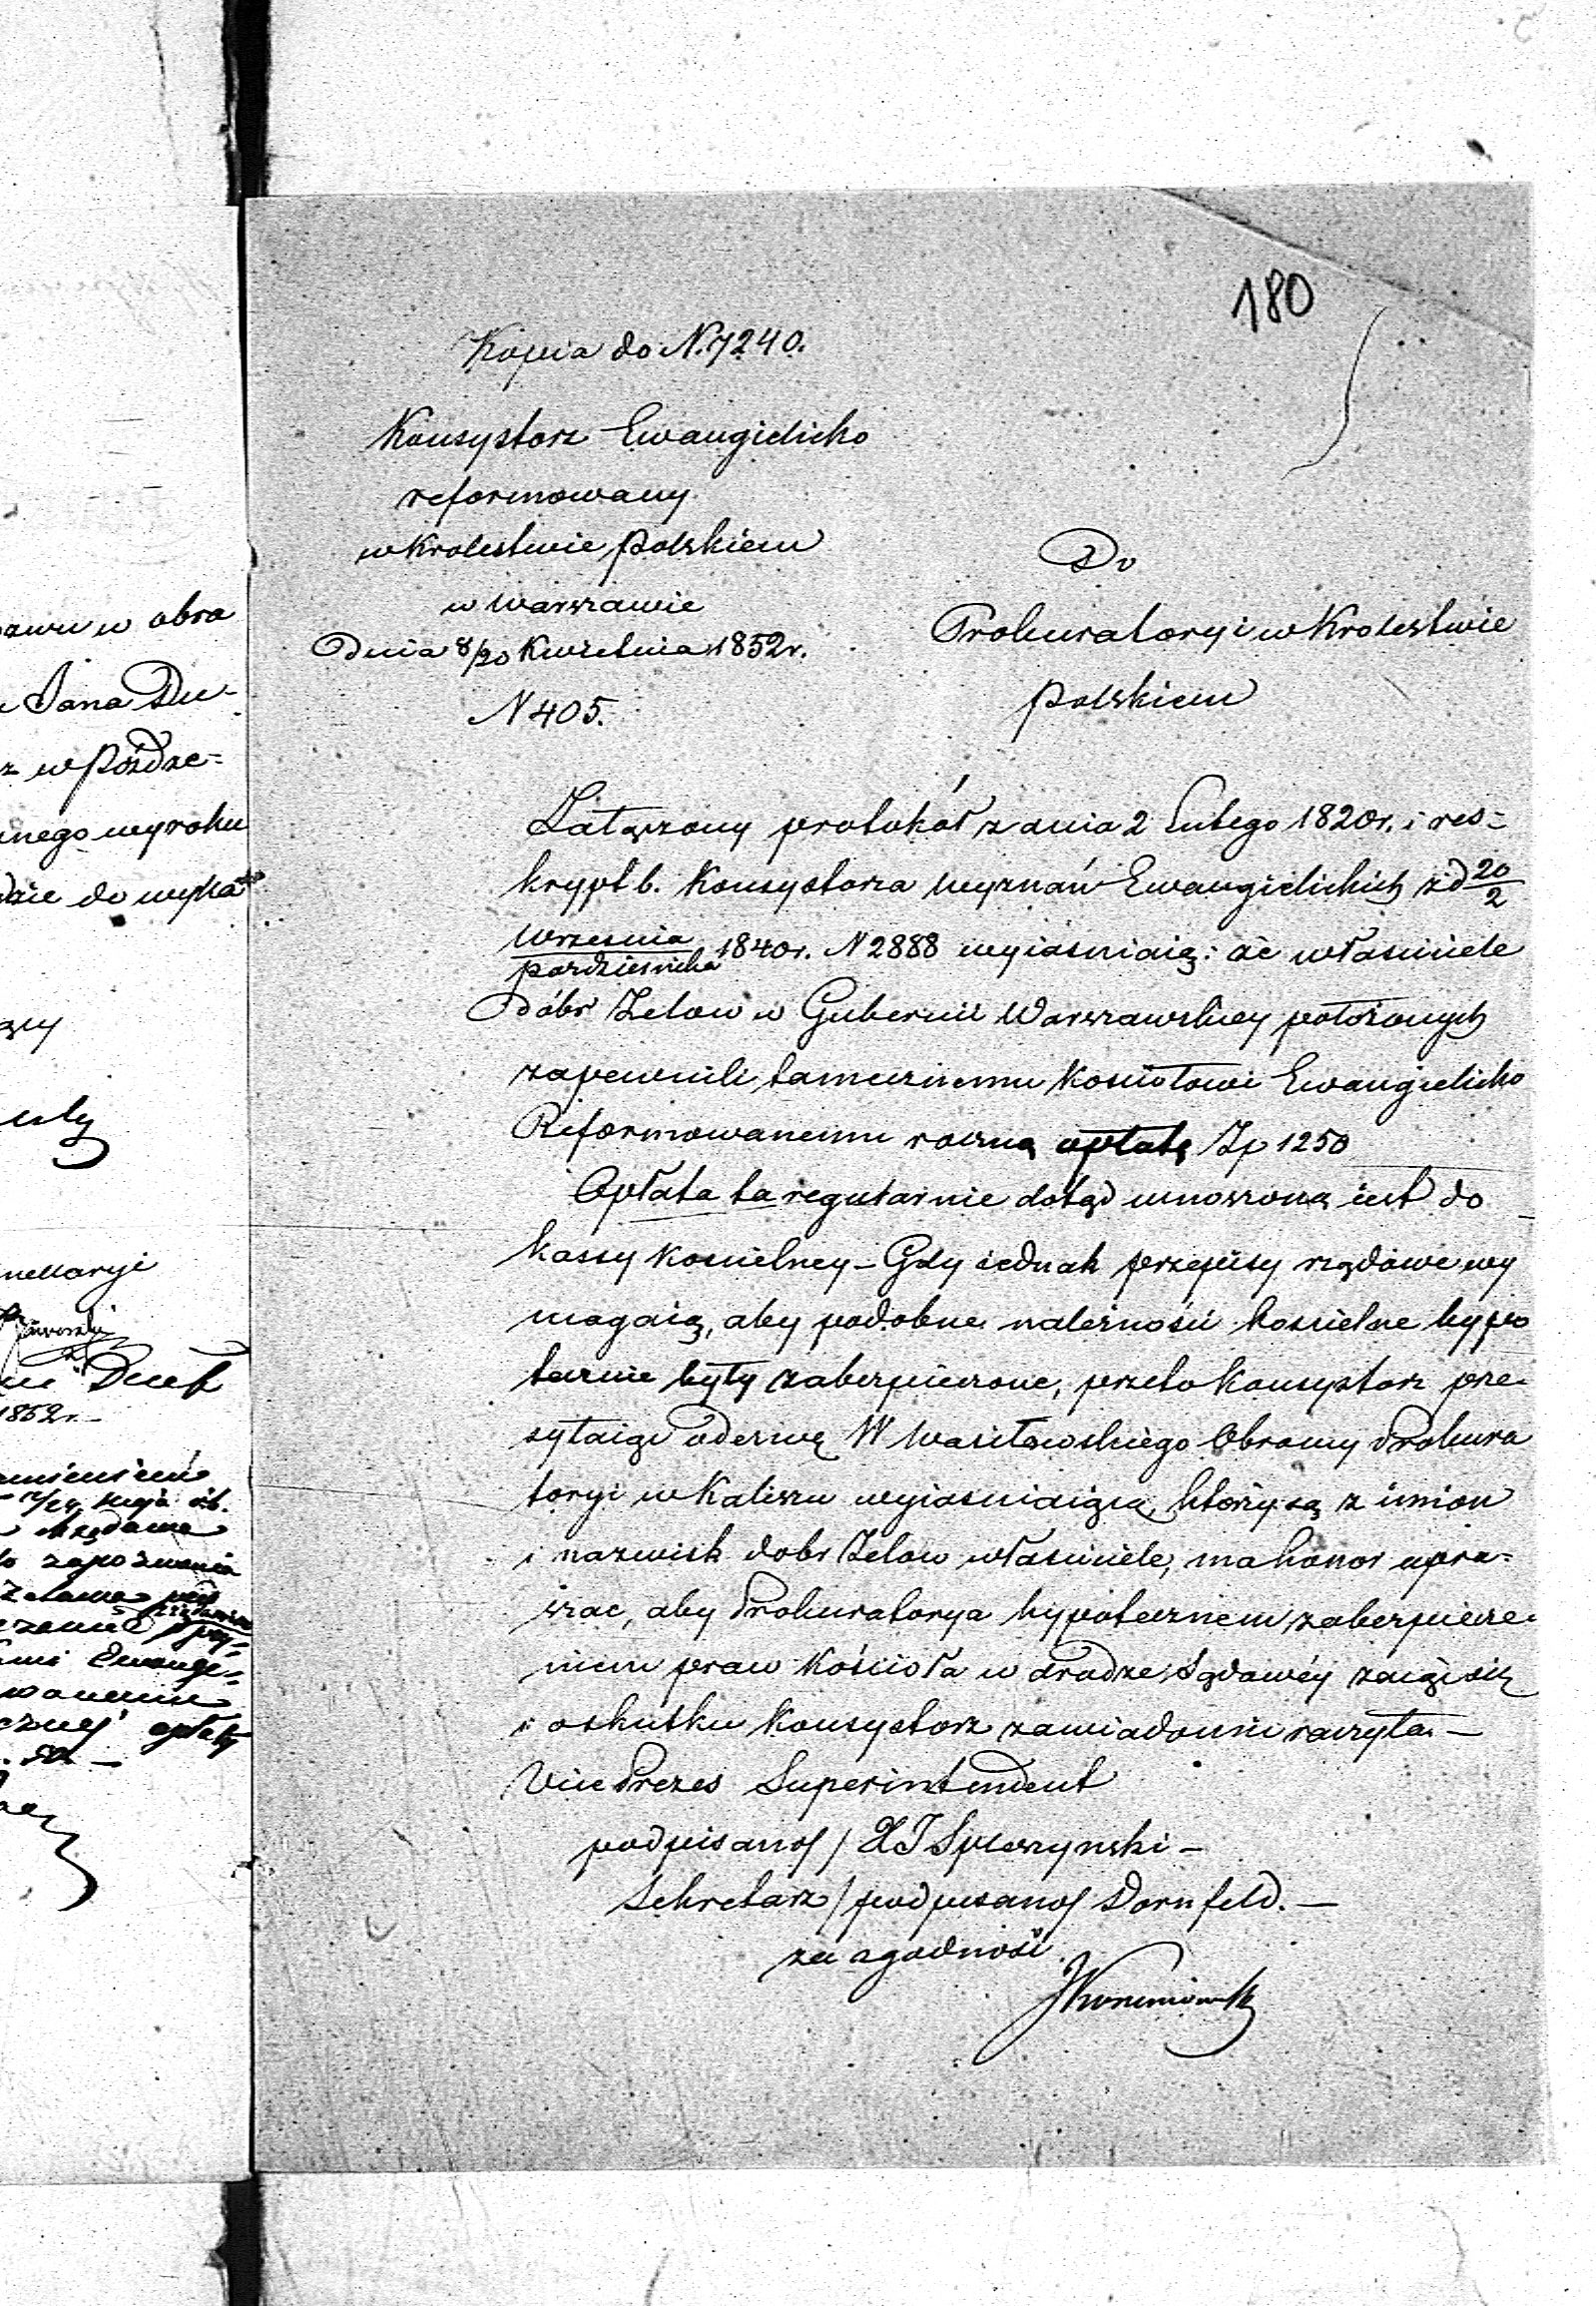 180
Kopia do N. 7240.
Konsystorz Ewangielicko
reformowany
w Krolestwie Polskiem
w Warszawie
Dnia 8/20 Kwietnia 1852 r.
N 405.
Do
Prokuratoryi w Krolestwie
Polskiem
Załączony protokół z dnia 2 Lutego 1820 r. i res=
krypt b. Konsystorza wyznań Ewangielickich z d 20/2
Września/Pazdziernika 1840 r. N 2888 wyiasniaią: że własciciele
dóbr Zelow w Gubernii Warszawskiey położonych
zapewnili tamecznemu Kosciołowi Ewangielicko
Reformowanemu roczną opłatę Zp 1250
Opłata ta regularnie dotąd wnoszoną iest do
kassy koscielney – Gdy iednak przepisy rządowe wy
magaią, aby podobne należności koscielne hypo
tecznie były zabezpieczone, przeto Konsystorz prze
syłaiąc odezwę W Wasiłowskiego Obroncy Prokura
toryi w Kaliszu wyiasniaiącą, którzy są z imion
i nazwisk dobr Zelow własciciele, ma honor upra=
szac, aby Prokuratorya hypotecznem zabezpiecze
niem praw Kościoła w drodze Sądowéy zaiąć się
i o skutku Konsystorz zawiadomić raczyła. –
Vice Prezes Superintendent
podpisano / Spleszynski –
Sekretarz / podpisano / Dornfeld. –
za zgodność
awu w obra
Jana Du-
z w Poźdze=
nego wyroku
dzie do wyka
nellaryi
1852 r. –
Ewange=
opłaty